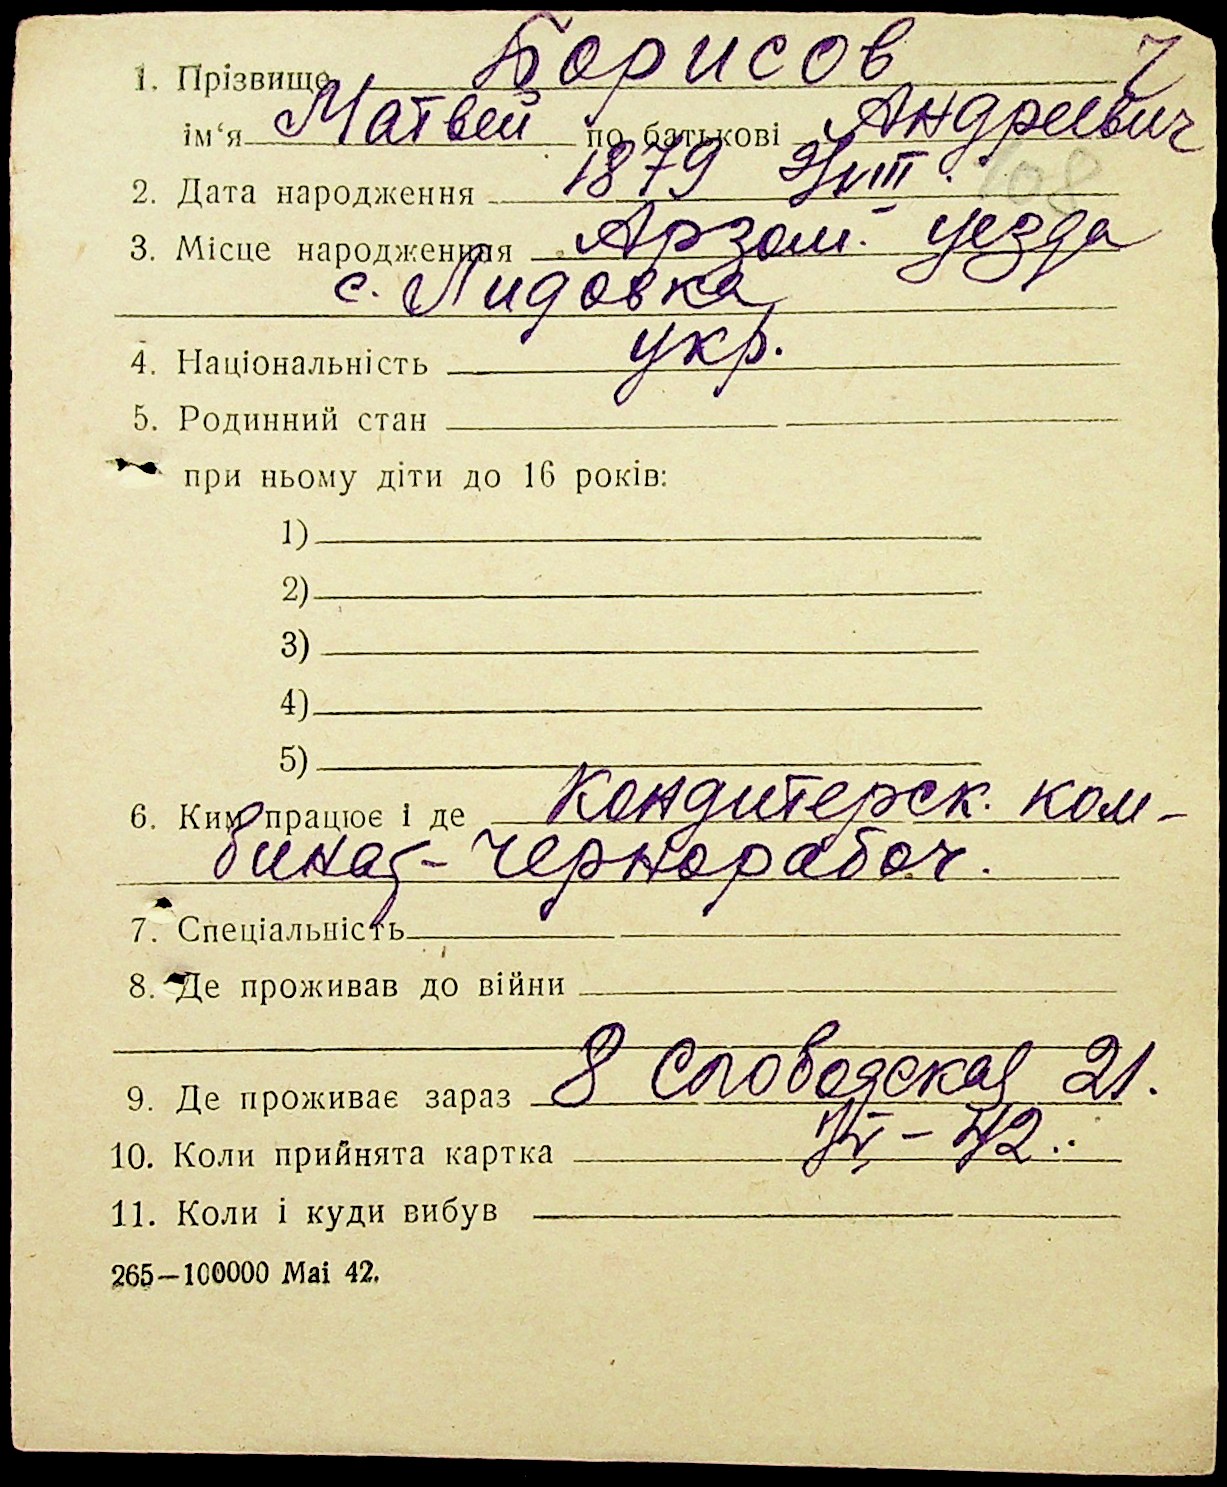 1. Прізвище Борисов 7
ім‘я Матвей по батькові Андреевич
2. Дата народження 1879 VIII. 108
3. Місце народження Арзам. уезда
с. Лидовка
4. Національність укр.
5. Родинний стан
при ньому діти до 16 років:
1)
2)
3)
4)
5)
6. Ким працює і де Кондитерск. ком-
бинат - чернорабоч.
7. Спеціальність
8. Де проживав до війни
9. Де проживає зараз 8 Слободская 21.
10. Коли прийнята картка - 42.
11. Коли і куди вибув
265—100000 Mai 42.